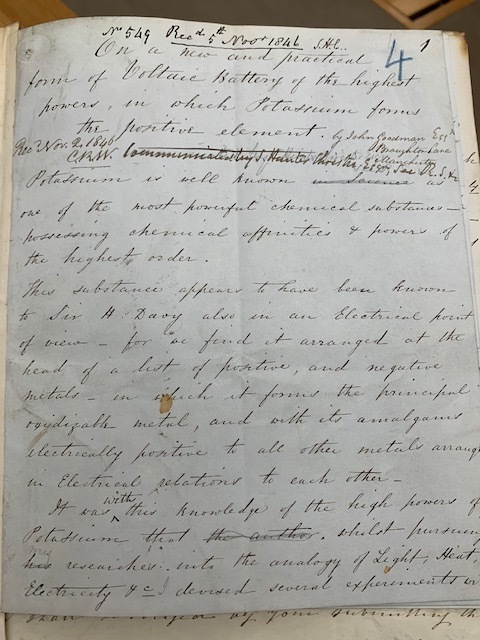 No 549 Recd 5th Novr 1846 S.H.C. 4 1
On a new and practical
form of Voltaic Battery of the highest
powers, in which Potassium forms
the positive element. by John Goodman Esqr
Broughton Lane
Manchester
Recd Nov. 2. 1846
C.R.W. Communicated by S. Hunter Christie, Esqr, Sec R.S. &c
Potassium is well known in Science as
one of the most powerful chemical substances –
possessing chemical affinities & powers of
the highest order.
This substance appears to have been known
to Sir H. Davy also in an Electrical point
of view – for we find it arranged at the
head of a list of positive, and negative
metals – in which it forms the principal
oxidizable metal, and with its amalgams
electrically positive to all other metals arrang
in Electrical relations to each other –
It was with this knowledge of the high powers of
Potassium that the author, whilst pursuing
my
his researches into the analogy of Light, Heat,
Electricity &c I devised several experiments
submitting th